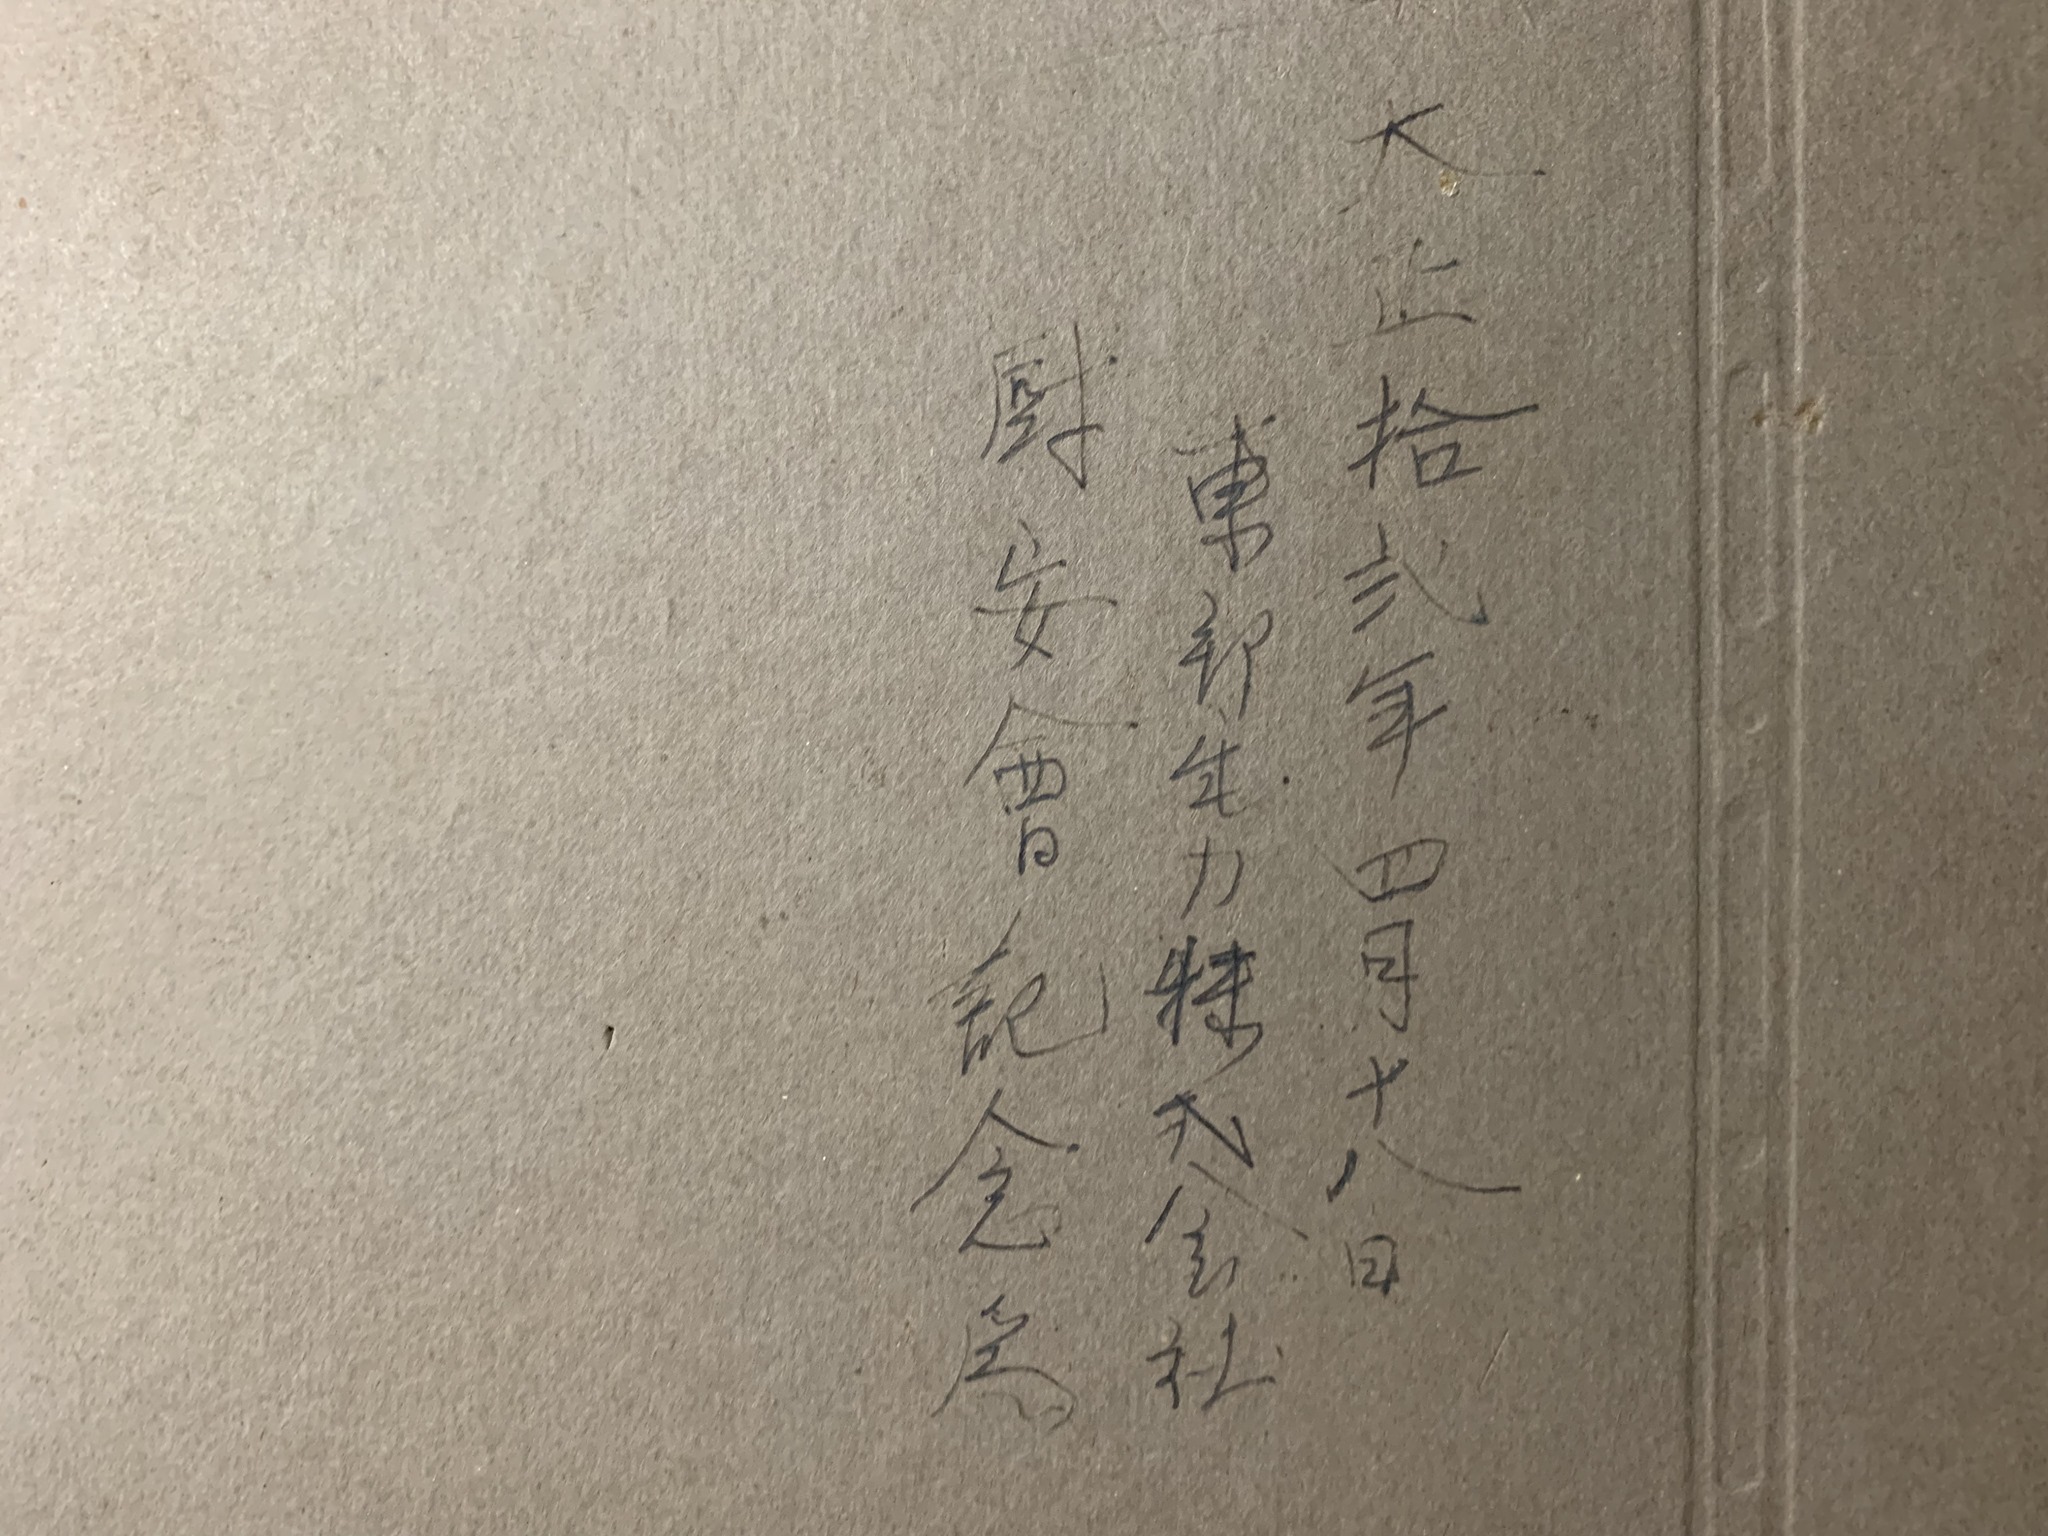 大正拾弍年四月十八日
東部生力株式会社
尉安會記念為